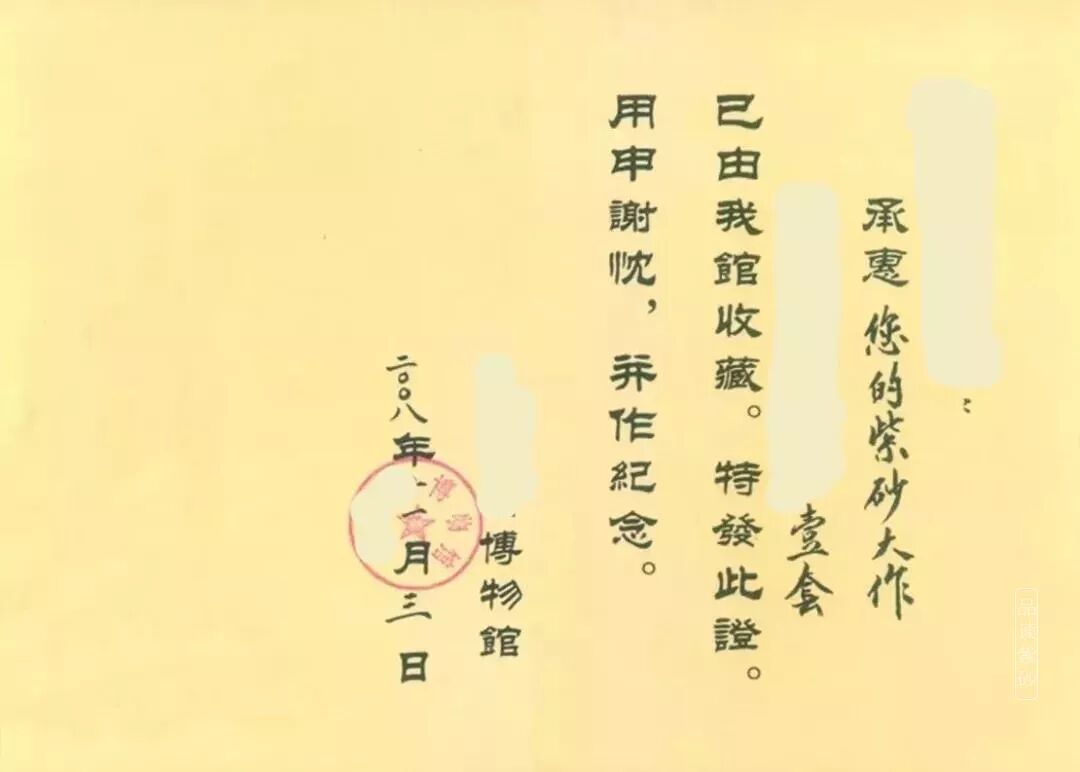 承惠您的紫砂大作
壹套
已由我館收藏。特發此證。
用申謝忱，并作紀念。
博物館
二〇〇八年
月三日
博物館